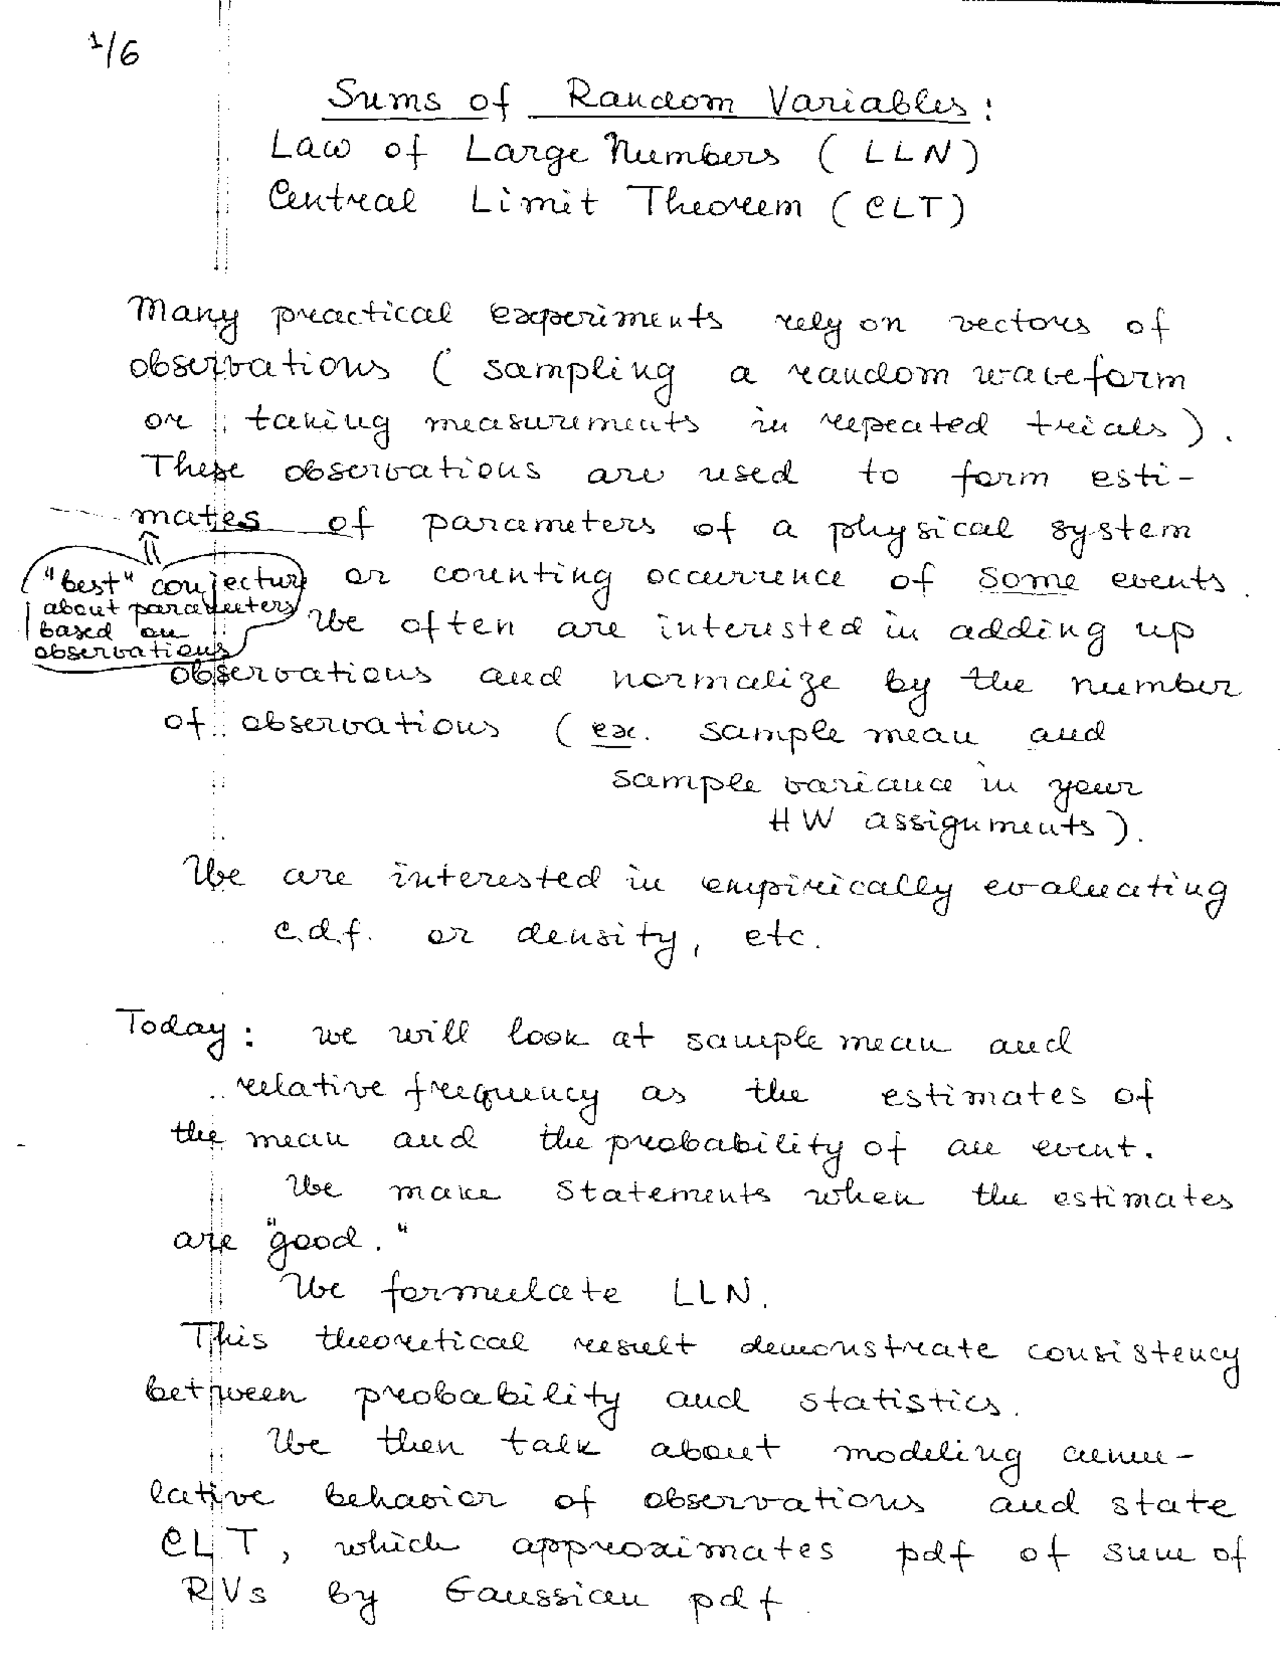 1/6
Sums of Random Variables:
Law of Large Numbers (LLN)
Central Limit Theorem (CLT)
Many practical experiments rely on vectors of
observations (sampling a random waveform
or taking measurements in repeated trials).
These observations are used to form esti-
mates of parameters of a physical system
"best" conjecture
about parameters
based on
observations
or counting occurrence of some events.
We often are interested in adding up
observations and normalize by the number
of observations (ex. sample mean and
sample variance in your
HW assignments).
We are interested in empirically evaluating
c.d.f. or density, etc.
Today: we will look at sample mean and
relative frequency as the estimates of
the mean and the probability of an event.
We make statements when the estimates
are "good."
We formulate LLN.
This theoretical result demonstrate consistency
between probability and statistics.
We then talk about modeling cumu-
lative behavior of observations and state
CLT, which approximates pdf of sum of
RVs by Gaussian pdf.